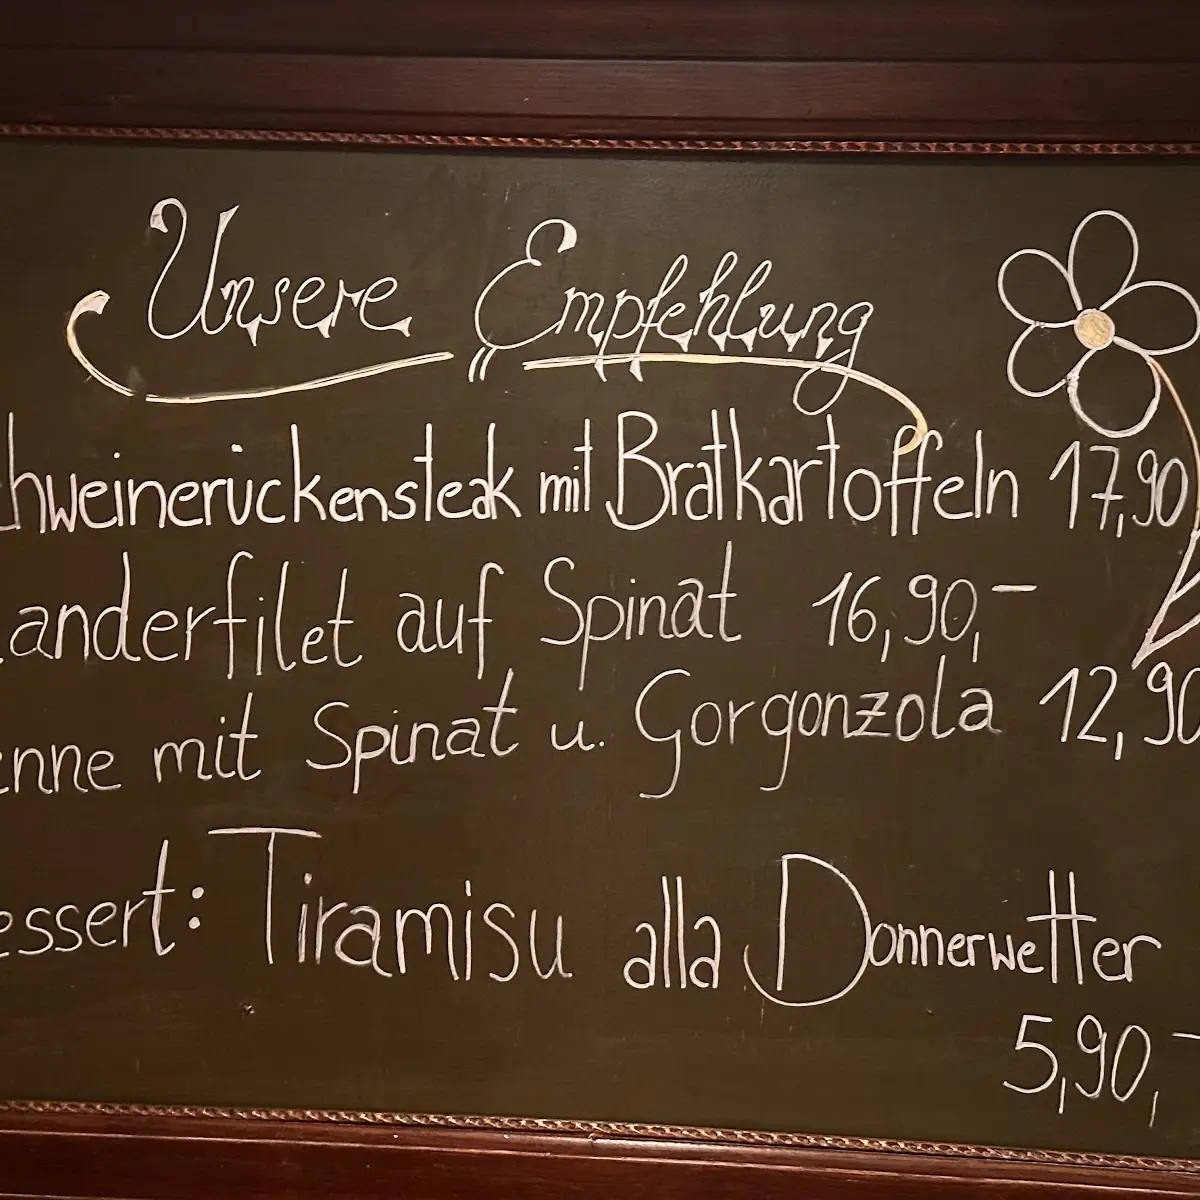 Unsere Empfehlung
chweinerückensteak mit Bratkartoffeln 17,90
anderfilet auf Spinat 16,90,-
enne mit Spinat u. Gorgonzola 12,90
essert: Tiramisu alla Donnerwetter
5,90,-